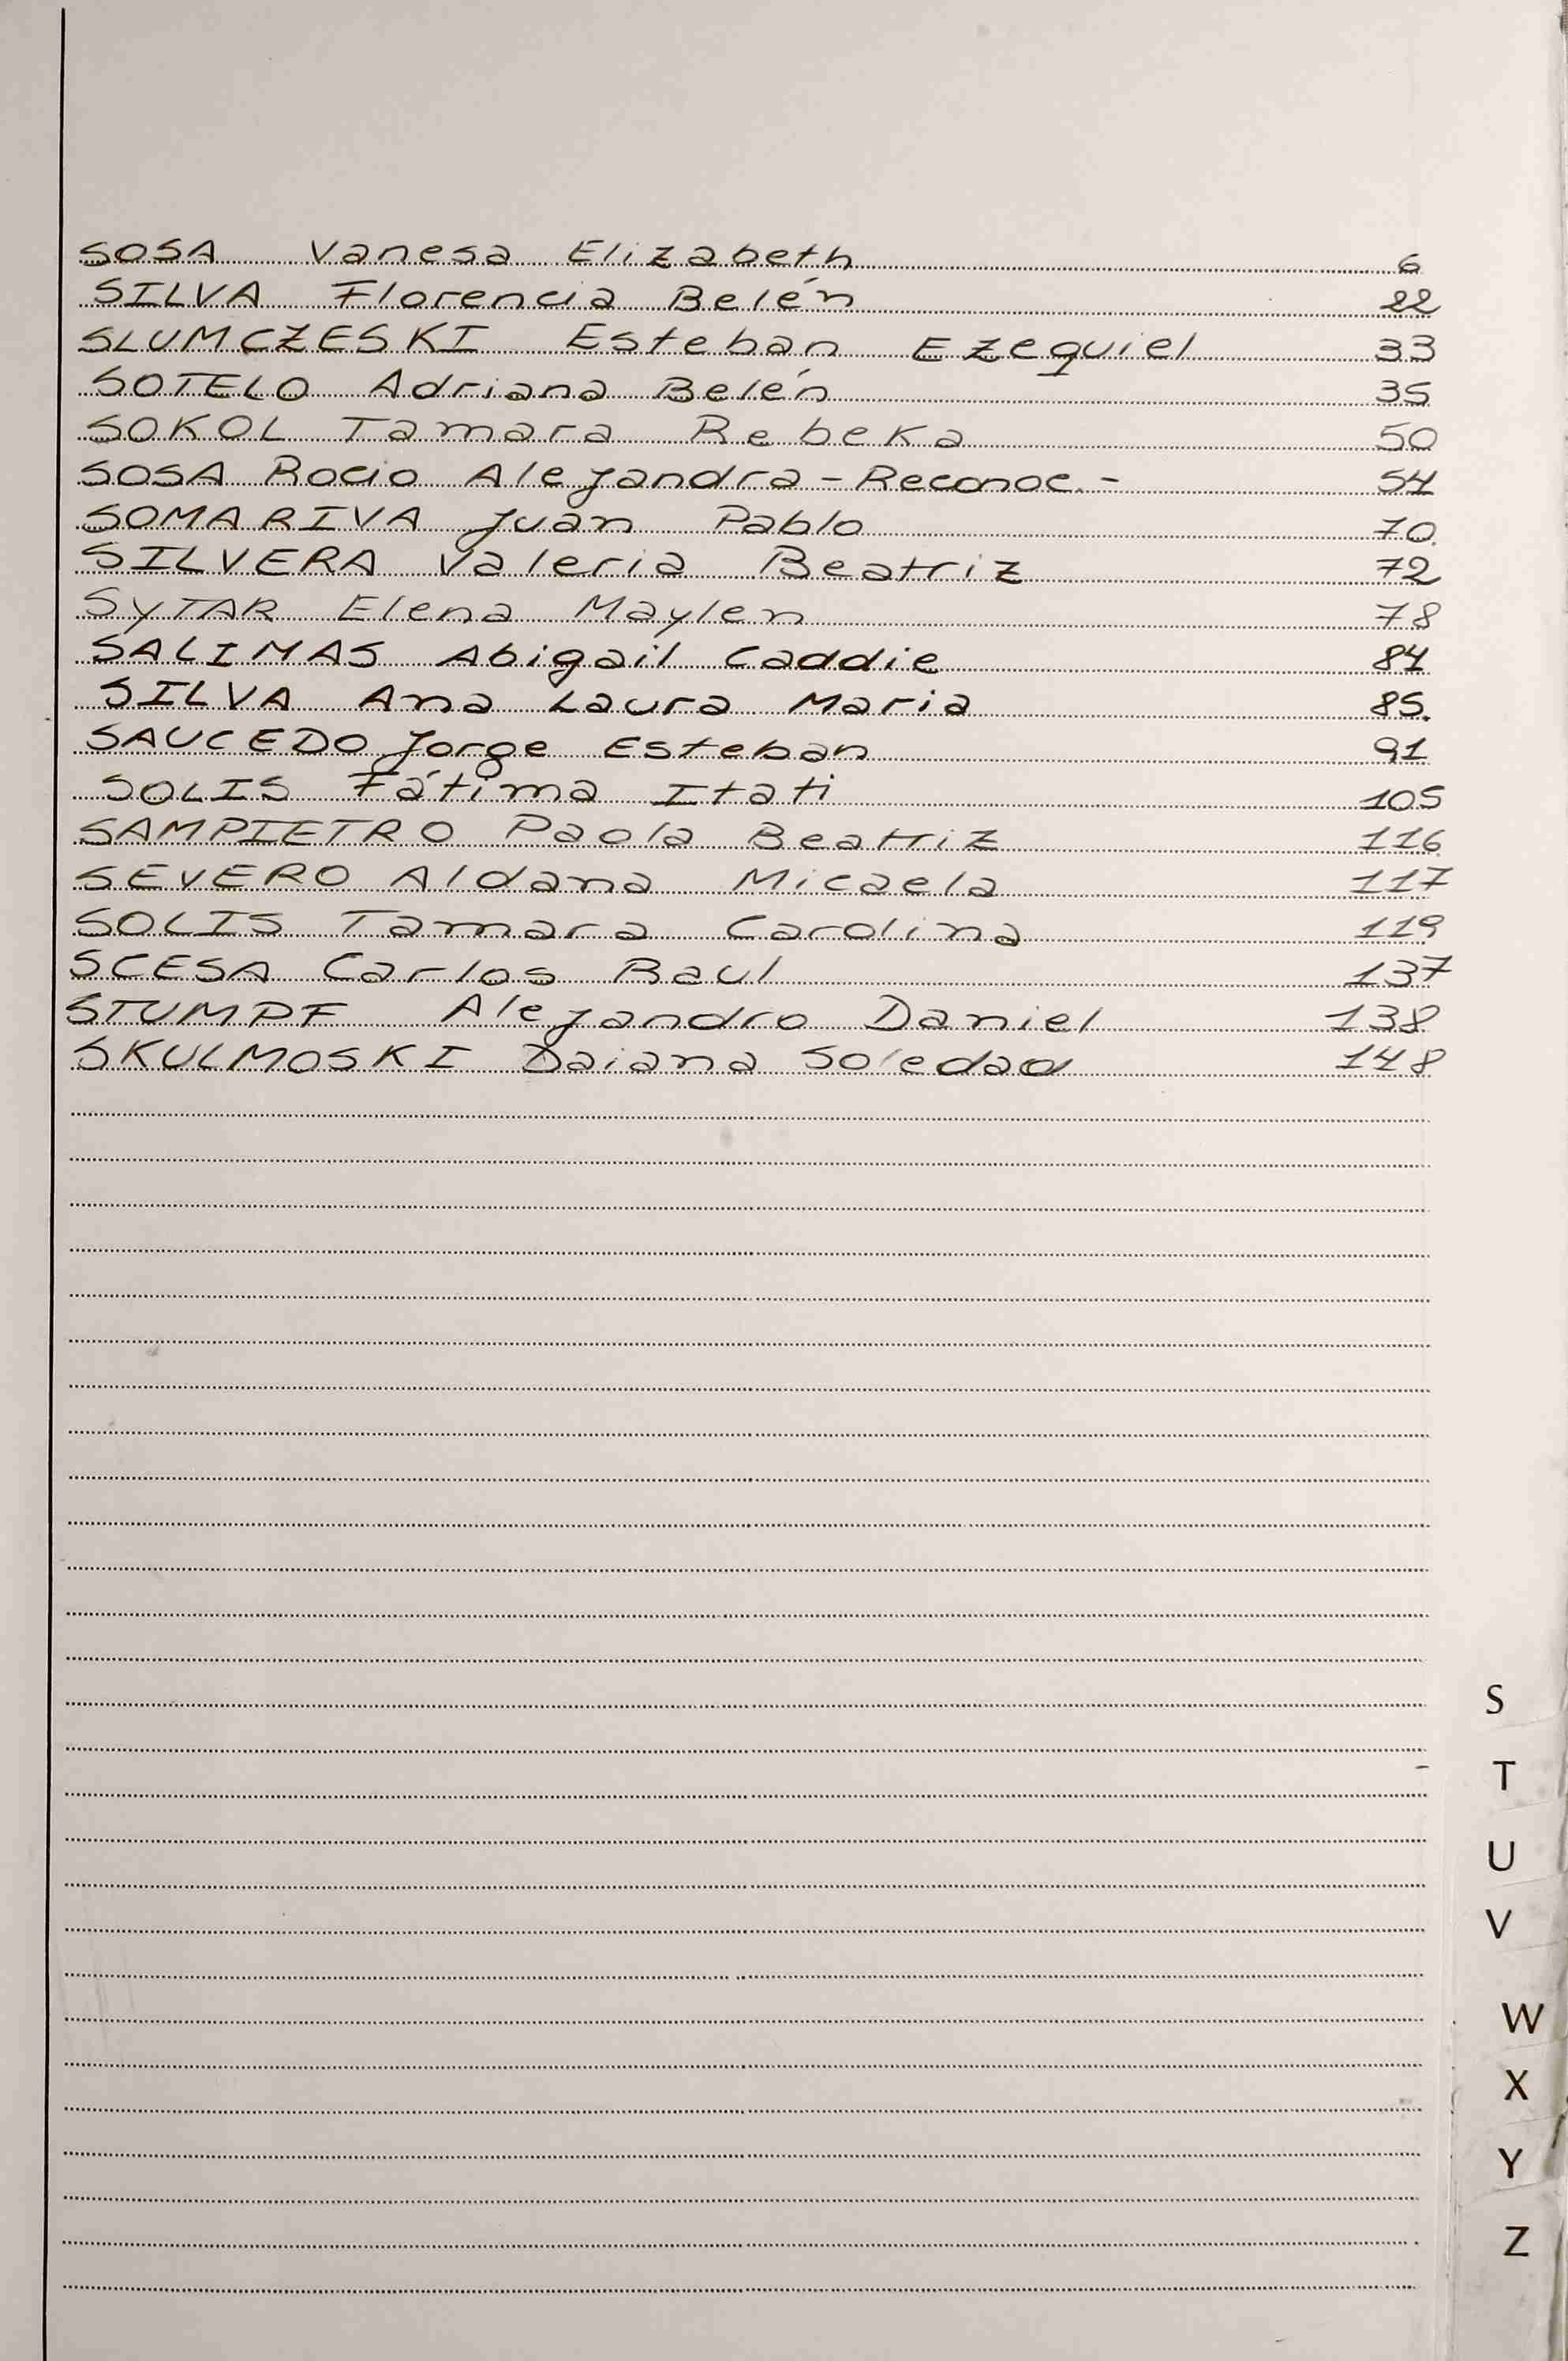 SOSA Vanesa Elizabeth 6
SILVA Florencia Belén 22
SLUMCZESKI Esteban Ezequiel 33
SOTELO Adriana Belén 35
SOKOL Tamara Rebeka 50
SOSA Rocio Alejandra - Reconoc. - 54
SOMARIVA Juan Pablo 70
SILVERA Valeria Beatriz 72
SYTAR Elena Maylen 78
SALIMAS Abigail Caddie 84
SILVA Ana Laura Maria 85.
SAUCEDO Jorge Esteban 91
SOLIS Fátima Itati 105
SAMPIETRO Paola Beatriz 116
SEVERO Aldana Micaela 117
SOLIS Tamara Carolina 119
SCESA Carlos Raul 137
STUMPF Alejandro Daniel 138
SKULMOSKI Daiana Soledad 148
S
T
U
V
W
X
Y
Z